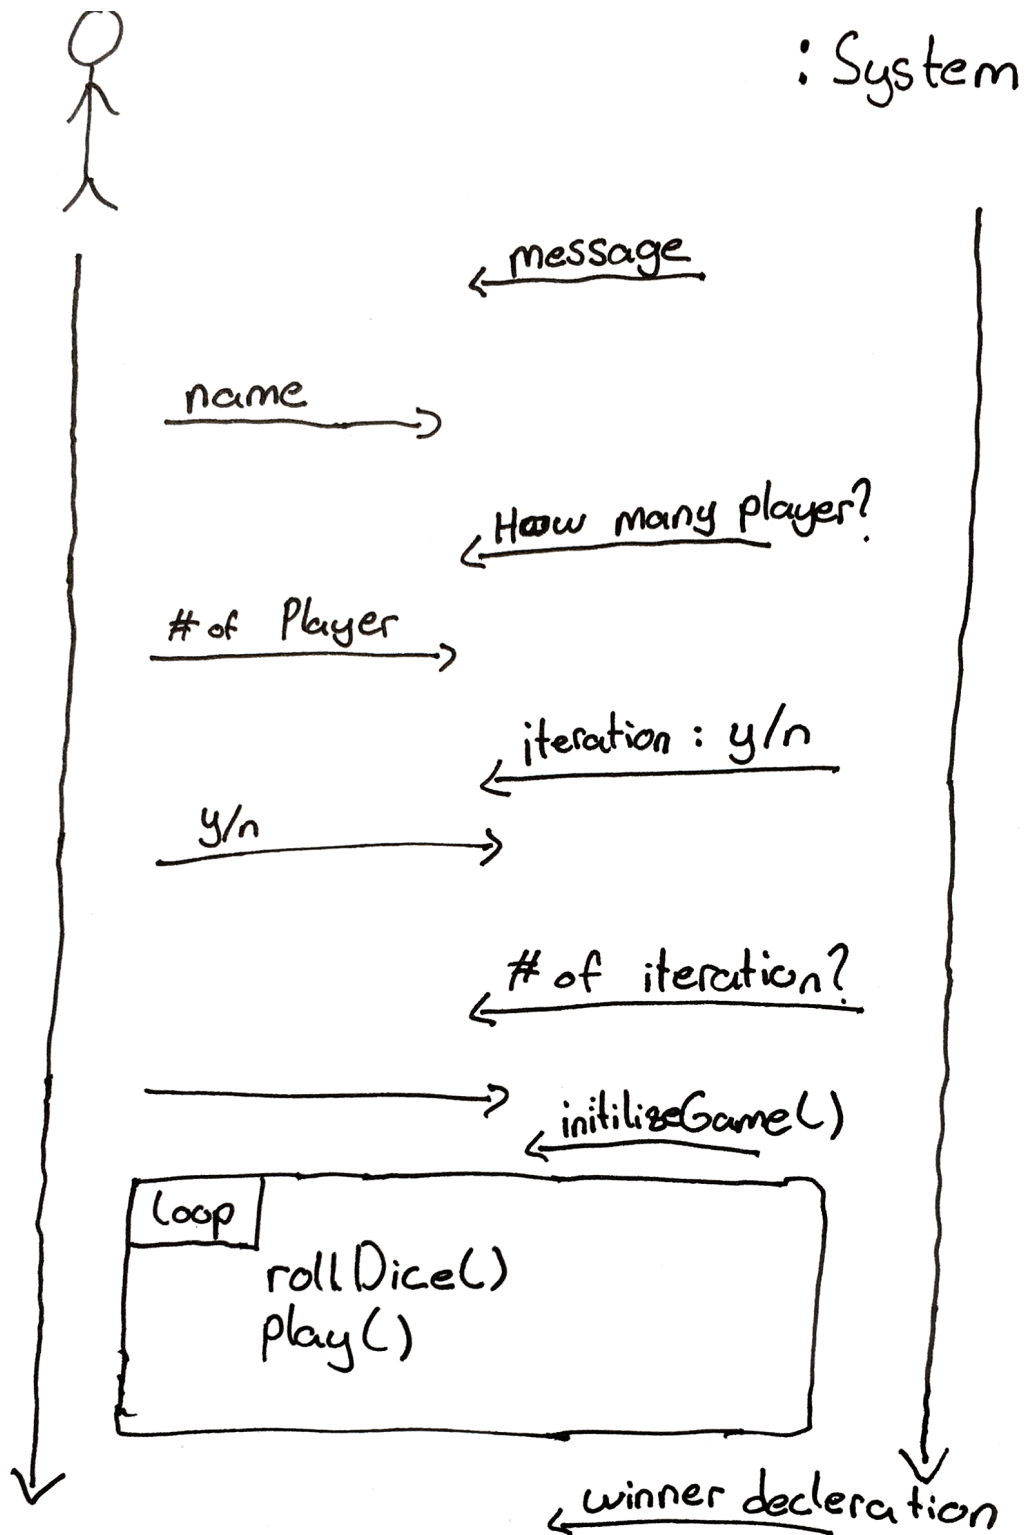 : System
message
name
How many player?
# of Player
iteration : y/n
y/n
# of iteration?
initilizeGame()
loop
rollDice()
play()
winner decleration